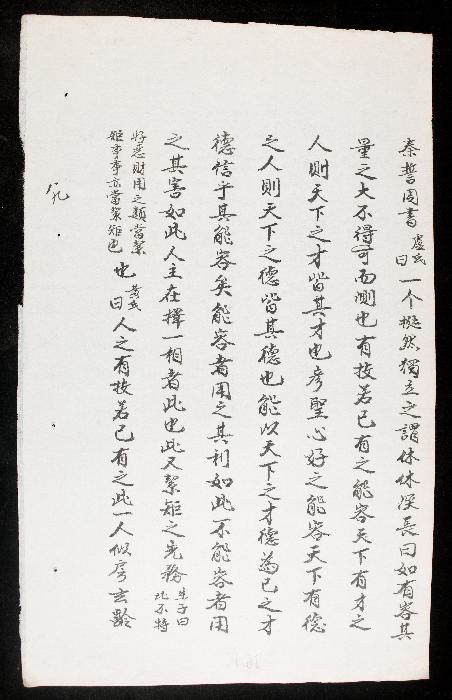 秦誓周書 盧氏曰 一个挺然獨立之謂休休深長曰如有容其
量之大不得可而測也有技若己有之能容天下有才之
人則天下之才皆其才也彥聖心好之能容天下有德
之人則天下之德皆其德也能以天下之才德為己之才
德信乎其能容矣能容者用之其利如此不能容者用
之其害如此人主在擇一相者此也此又絜矩之先務 朱子曰此不特
好惡財用之類當絜矩事事亦當絜矩也 黃氏曰人之有技若己有之此一人似房玄齡